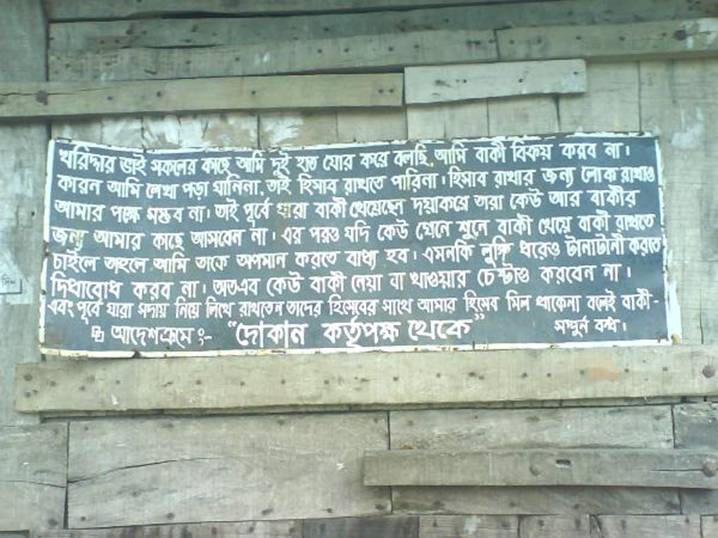 খরিদ্দার ভাই সকলের কাছে আমি দুই হাত যোর করে বলছি, আমি বাকী বিক্রয় করব না।
কারন আমি লেখা পড়া যানিনা, তাই হিসাব রাখতে পারিনা। হিসাব রাখার জন্য লোক রাখাও
আমার পক্ষে সম্ভব না। তাই পূর্বে যারা বাকী খেয়েছেন দয়াকরে তারা কেউ আর বাকীর
জন্য আমার কাছে আসবেন না। এর পরও যদি কেউ যেনে শুনে বাকী খেয়ে বাকী রাখতে
চাইলে তাহলে আমি তাকে অপমান করতে বাধ্য হব। এমনকি লুঙ্গি ধরেও টানাটানী করতে
দিধাবোধ করব না। অতএব কেউ বাকী নেয়া বা খাওয়ার চেস্টাও করবেন না।
এবং পূর্বে যারা সদায় নিয়ে লিখে রাখতেন তাদের হিসেবের সাথে আমার হিসেব মিল থাকেনা বলেই বাকী-
আদেশক্রমে ঃ- "দোকান কর্তৃপক্ষ থেকে" সম্পুর্ন বন্ধ।